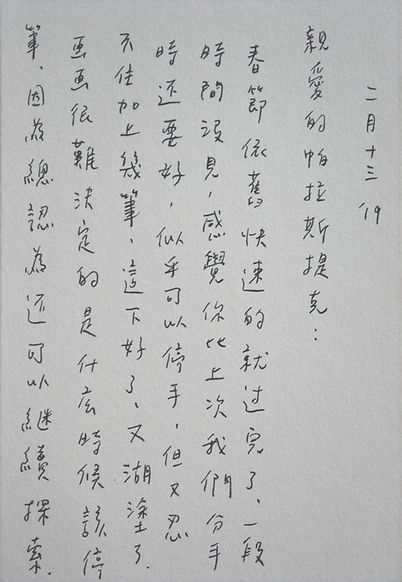 二月十三 '19
親愛的帕拉斯提克：
春節依舊快速的就过完了、一段
時間没見，感覺你比上次我們分手
時还要好，似乎可以停手，但又忍
不住加上幾筆，這下好了、又湖塗了.
画画很難决定的是什庅時候該停
筆、因為總認為还可以継續探索.